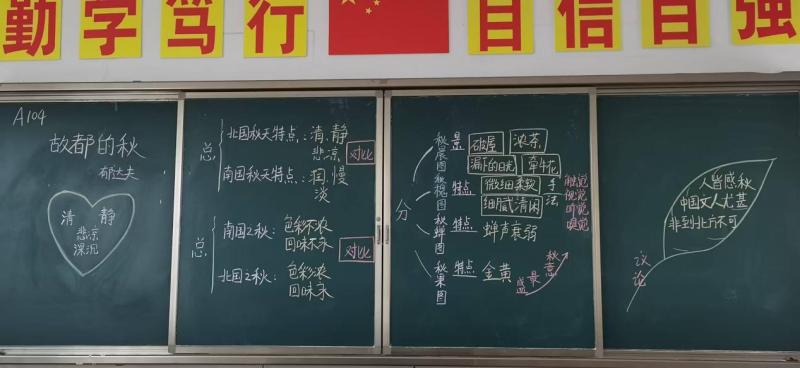 勤学笃行
自信自强
A104
故都的秋
郁达夫
清 静
悲凉
深沉
总
北国秋天特点：清、静
悲凉
对比
南国秋天特点：润、慢
淡
总
南国之秋：色彩不浓
回味不永
对比
北国之秋：色彩浓
回味永
分
秋晨图
景
破屋
浓茶
漏下的日光
牵牛花
秋槐图
特点
微细柔软
细腻清闲
手法
触觉
视觉
听觉
嗅觉
秋蝉图
特点
蝉声衰弱
秋果图
特点
金黄
盛
最
秋意
人皆感秋
中国文人尤甚
非到北方不可
议论